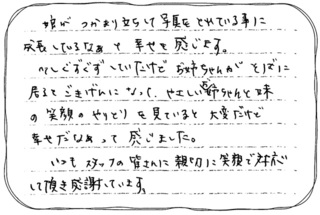 娘が つかまり立ちして写真をとれている事に
成長しているなぁ と 幸せを感じます。
少しぐずぐずしていたけど お姉ちゃんが そばに
居ると ごきげんになって、やさしいお姉ちゃんと妹
の 笑顔の やりとり を 見ていると 大変だけど
幸せだなぁって 感じました。
いつも スタッフの皆さんに 親切に 笑顔で 対応
して頂き感謝しています。